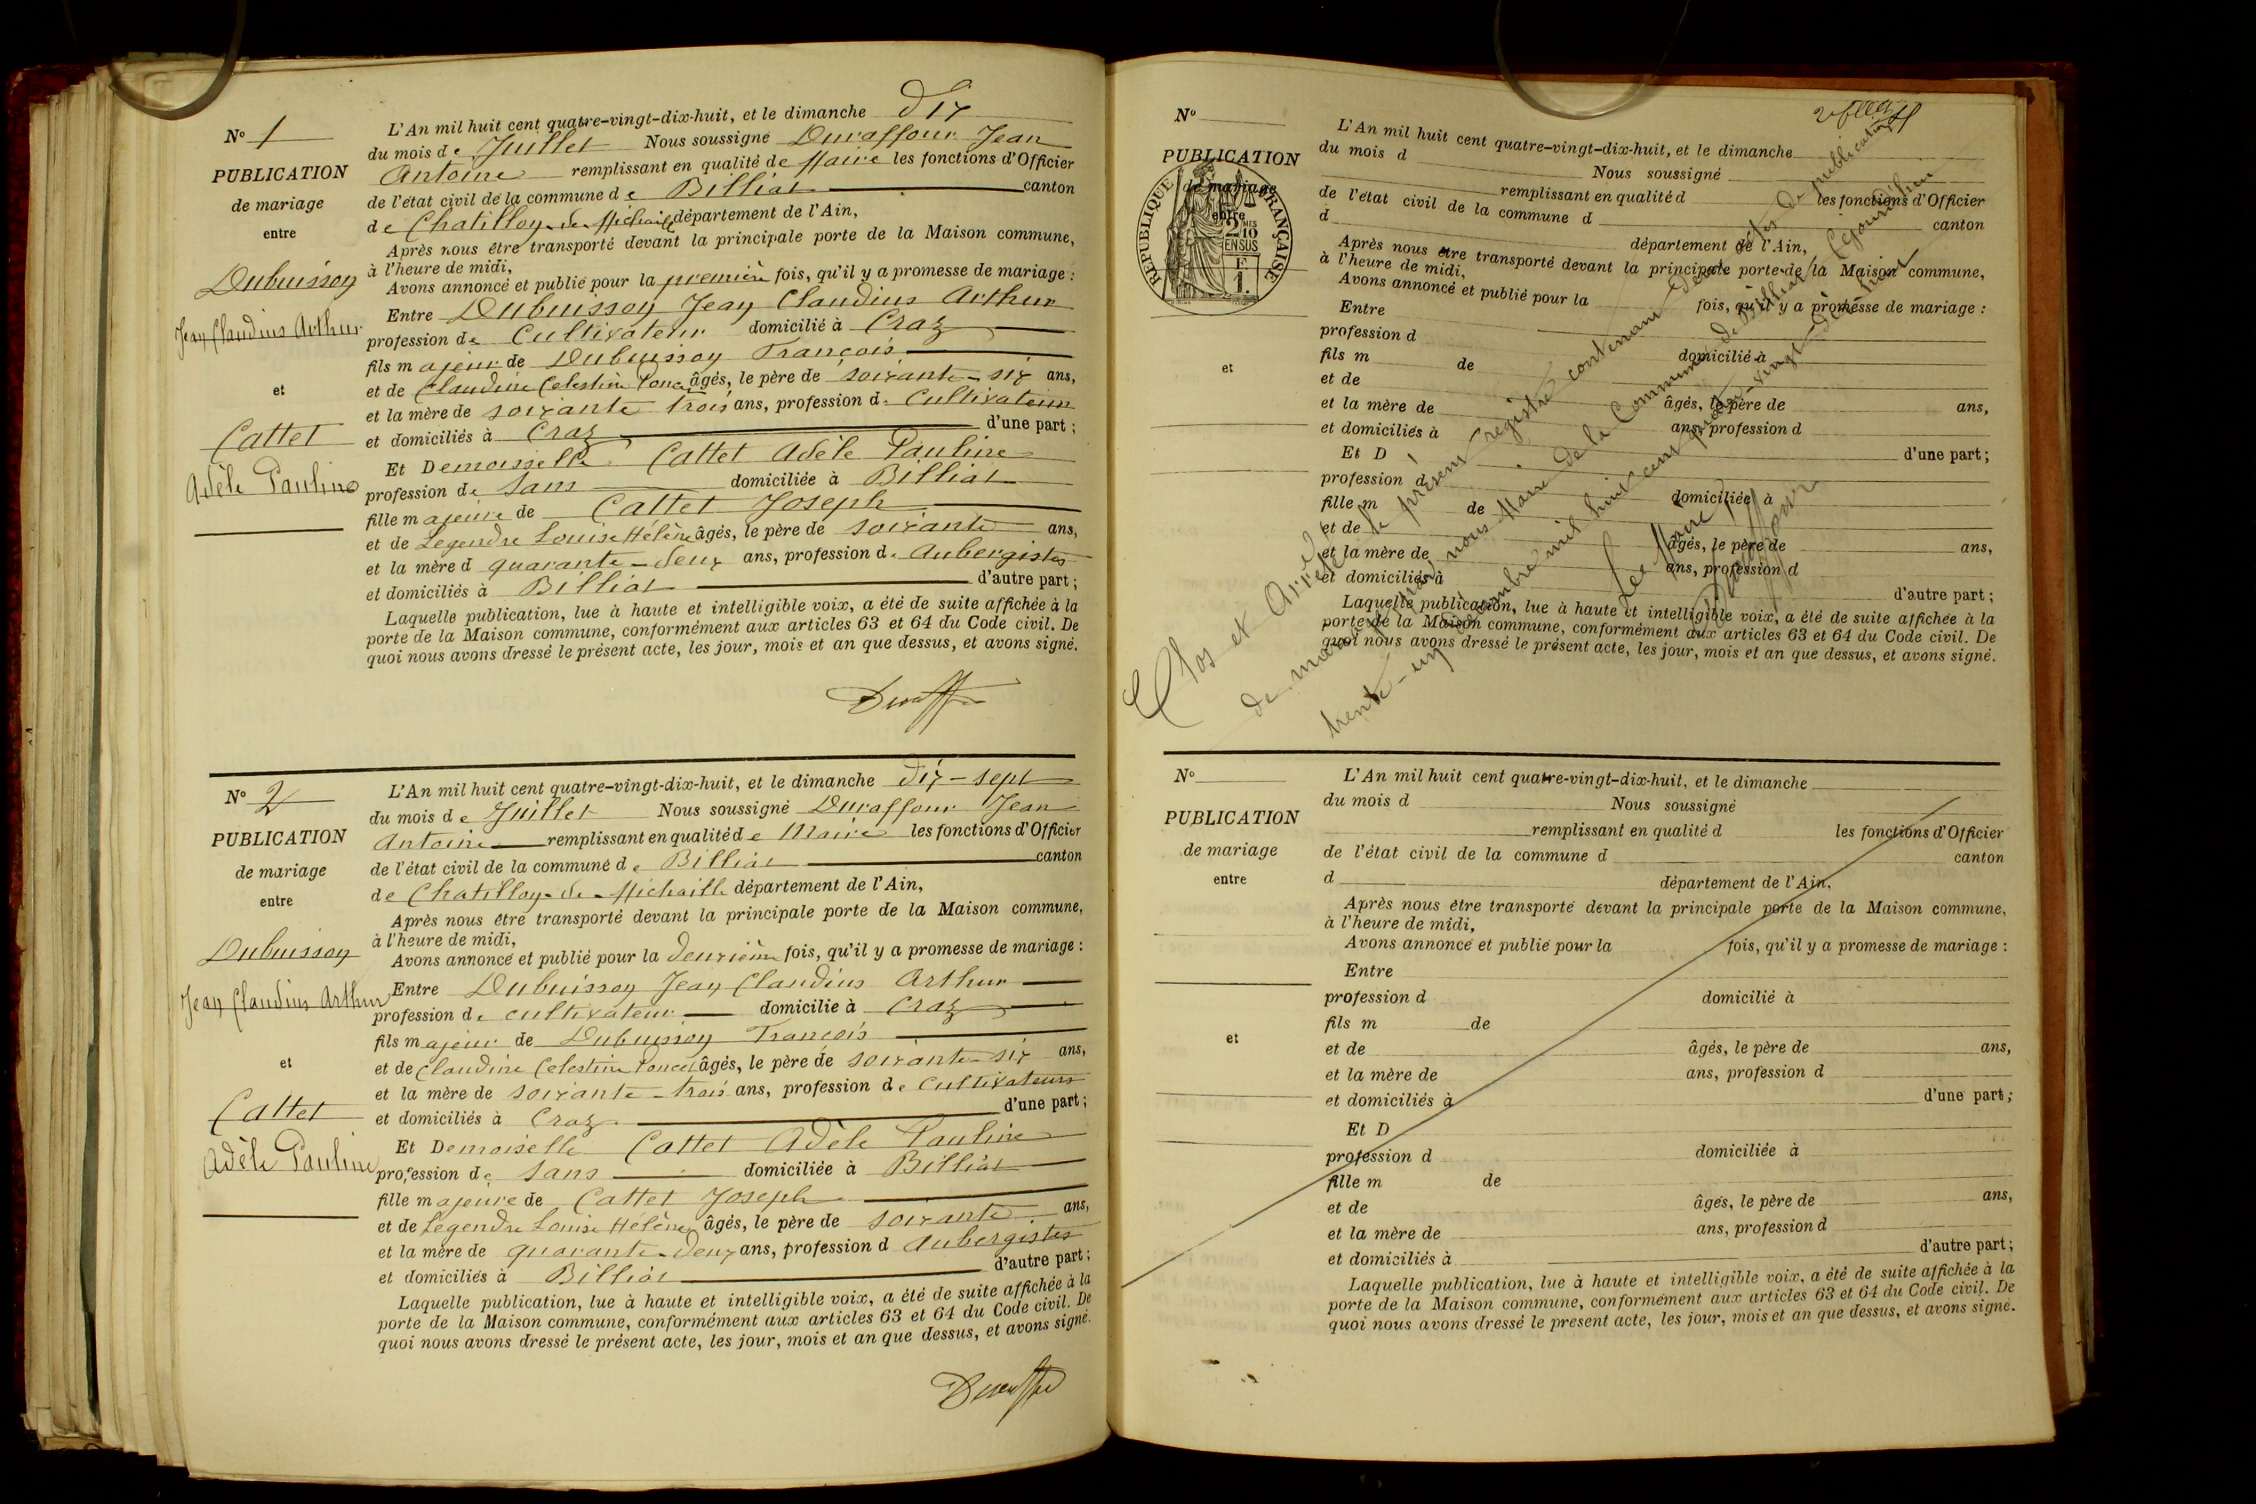 N° 1
PUBLICATION
de mariage
entre
Dubuisson
Jean Claudius Arthur
et
Cattet
Adèle Pauline
L'An mil huit cent quatre-vingt-dix-huit, et le dimanche dix
du mois de Juillet Nous soussigné Duraffour Jean
Antoine remplissant en qualité de Maire les fonctions d'Officier
de l'état civil de la commune de Billiat canton
de Chatillon-de-Michaille département de l'Ain,
Après nous être transporté devant la principale porte de la Maison commune,
à l'heure de midi,
Avons annoncé et publié pour la première fois, qu'il y a promesse de mariage :
Entre Dubuisson Jean Claudius Arthur
profession de Cultivateur domicilié à Craz
fils majeur de Dubuisson François
et de Claudine Celestine Poncet âgés, le père de soixante-six ans,
et la mère de soixante trois ans, profession de Cultivateurs
et domiciliés à Craz d'une part ;
Et Demoiselle Cattet Adèle Pauline
profession de sans domiciliée à Billiat
fille majeure de Cattet Joseph
et de Legendre Louise Hélène âgés, le père de soixante ans,
et la mère d quarante-deux ans, profession d. Aubergistes
et domiciliés à Billiat d'autre part ;
Laquelle publication, lue à haute et intelligible voix, a été de suite affichée à la
porte de la Maison commune, conformément aux articles 63 et 64 du Code civil. De
quoi nous avons dressé le présent acte, les jour, mois et an que dessus, et avons signé.
N° 2
PUBLICATION
de mariage
entre
Dubuisson
Jean Claudius Arthur
et
Cattet
Adèle Pauline
L'An mil huit cent quatre-vingt-dix-huit, et le dimanche dix-sept
du mois de Juillet Nous soussigné Duraffour Jean
Antoine remplissant en qualité de Maire les fonctions d'Officier
de l'état civil de la commune de Billiat canton
de Chatillon-de-Michaille département de l'Ain,
Après nous être transporté devant la principale porte de la Maison commune,
à l'heure de midi,
Avons annoncé et publié pour la deuxième fois, qu'il y a promesse de mariage :
Entre Dubuisson Jean Claudius Arthur
profession de cultivateur domicilié à Craz
fils majeur de Dubuisson François
et de Claudine Celestine Poncet âgés, le père de soixante-six ans,
et la mère de soixante-trois ans, profession de Cultivateurs
et domiciliés à Craz d'une part ;
Et Demoiselle Cattet Adèle Pauline
profession de sans domiciliée à Billiat
fille majeure de Cattet Joseph
et de Legendre Louise Hélène âgés, le père de soixante ans,
et la mère de quarante-deux ans, profession d Aubergistes
et domiciliés à Billiat d'autre part ;
Laquelle publication, lue à haute et intelligible voix, a été de suite affichée à la
porte de la Maison commune, conformément aux articles 63 et 64 du Code civil. De
quoi nous avons dressé le présent acte, les jour, mois et an que dessus, et avons signé.
N°
PUBLICATION
de mariage
entre
RÉPUBLIQUE FRANÇAISE
2 MES
10
EN SUS
F
1.
et
L'An mil huit cent quatre-vingt-dix-huit, et le dimanche
du mois d Nous soussigné
remplissant en qualité d les fonctions d'Officier
de l'état civil de la commune d canton
d département de l'Ain,
Après nous être transporté devant la principale porte de la Maison commune,
à l'heure de midi,
Avons annoncé et publié pour la fois, qu'il y a promesse de mariage :
Entre
profession d domicilié à
fils m de
et de âgés, le père de ans,
et la mère de ans, profession d
et domiciliés à d'une part ;
Et D
profession d domiciliée à
fille m de
et de âgés, le père de ans,
et la mère de ans, profession d
et domiciliés à d'autre part ;
Laquelle publication, lue à haute et intelligible voix, a été de suite affichée à la
porte de la Maison commune, conformément aux articles 63 et 64 du Code civil. De
quoi nous avons dressé le présent acte, les jour, mois et an que dessus, et avons signé.
Clos et Arrêté le présent registre contenant deux actes de publication
de mariage par nous Maire de la Commune de Billiat, ce jourd'hui
trente-un décembre mil huit cent quatre-vingt-dix huit
Le Maire
Duraffour
N°
PUBLICATION
de mariage
entre
et
L'An mil huit cent quatre-vingt-dix-huit, et le dimanche
du mois d Nous soussigné
remplissant en qualité d les fonctions d'Officier
de l'état civil de la commune d canton
d département de l'Ain,
Après nous être transporté devant la principale porte de la Maison commune,
à l'heure de midi,
Avons annoncé et publié pour la fois, qu'il y a promesse de mariage :
Entre
profession d domicilié à
fils m de
et de âgés, le père de ans,
et la mère de ans, profession d
et domiciliés à d'une part ;
Et D
profession d domiciliée à
fille m de
et de âgés, le père de ans,
et la mère de ans, profession d
et domiciliés à d'autre part ;
Laquelle publication, lue à haute et intelligible voix, a été de suite affichée à la
porte de la Maison commune, conformément aux articles 63 et 64 du Code civil. De
quoi nous avons dressé le présent acte, les jour, mois et an que dessus, et avons signé.